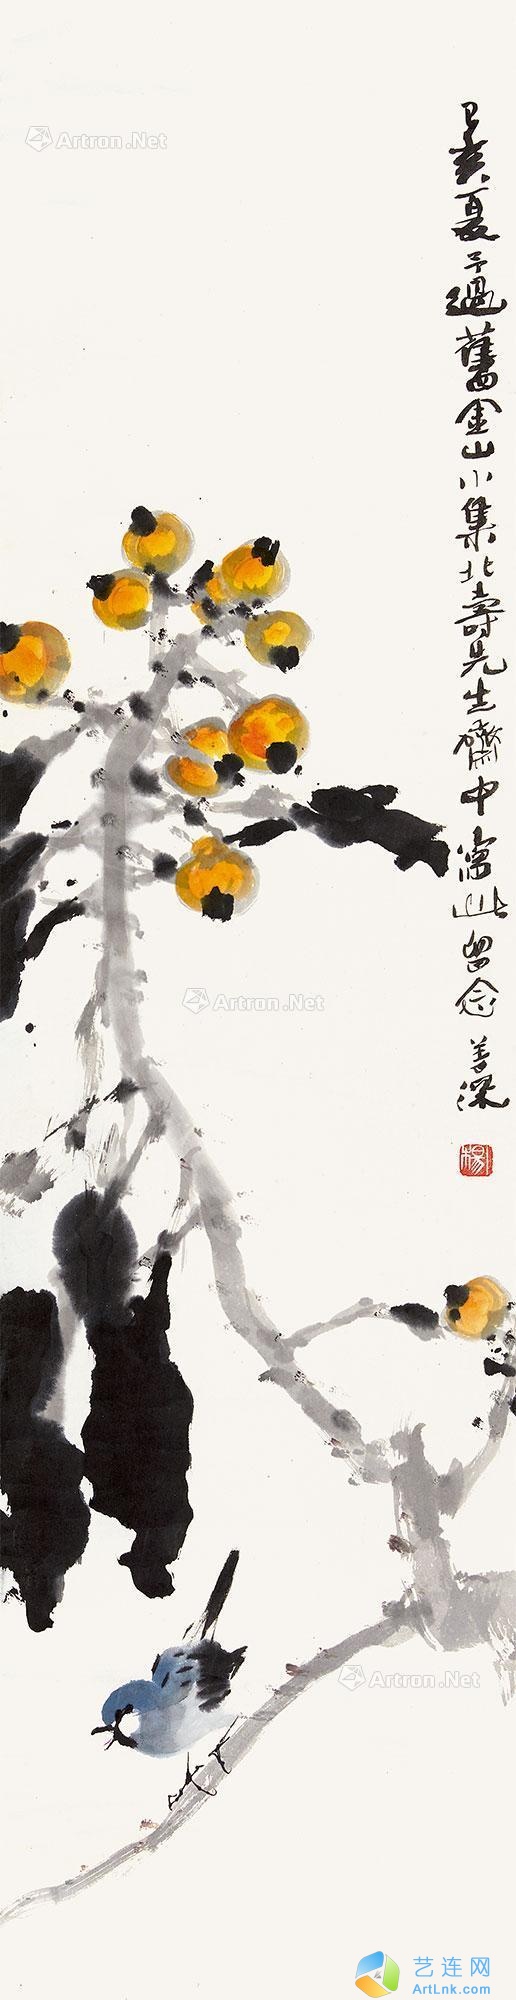 Artron.Net
己亥夏予過舊金山小集北壽先生齋中寫此留念
善深
楊
Artron.Net
Artron.Net
艺连网
ArtLnk.com